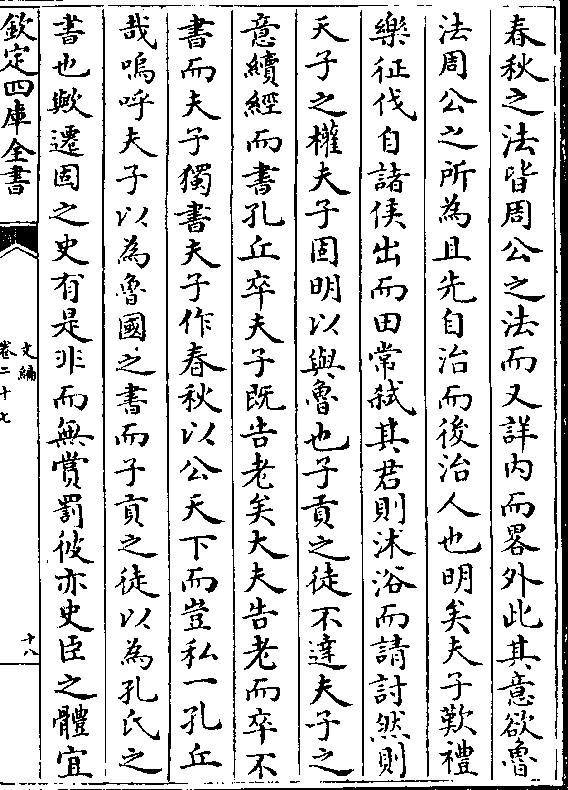 春秋之法皆周公之法而又詳内而畧外此其意欲魯
法周公之所為且先自治而後治人也明矣夫子歎禮
樂征伐自諸侯出而田常弑其君則沐浴而請討然則
天子之權夫子固明以與魯也子貢之徒不達夫子之
意續經而書孔丘卒夫子既告老矣大夫告老而卒不
書而夫子獨書夫子作春秋以公天下而豈私一孔丘
哉嗚呼夫子以為魯國之書而子貢之徒以為孔氏之
書也歟遷固之史有是非而無賞罰彼亦史臣之體宜
欽定四庫全書
文編
卷二十七
十八